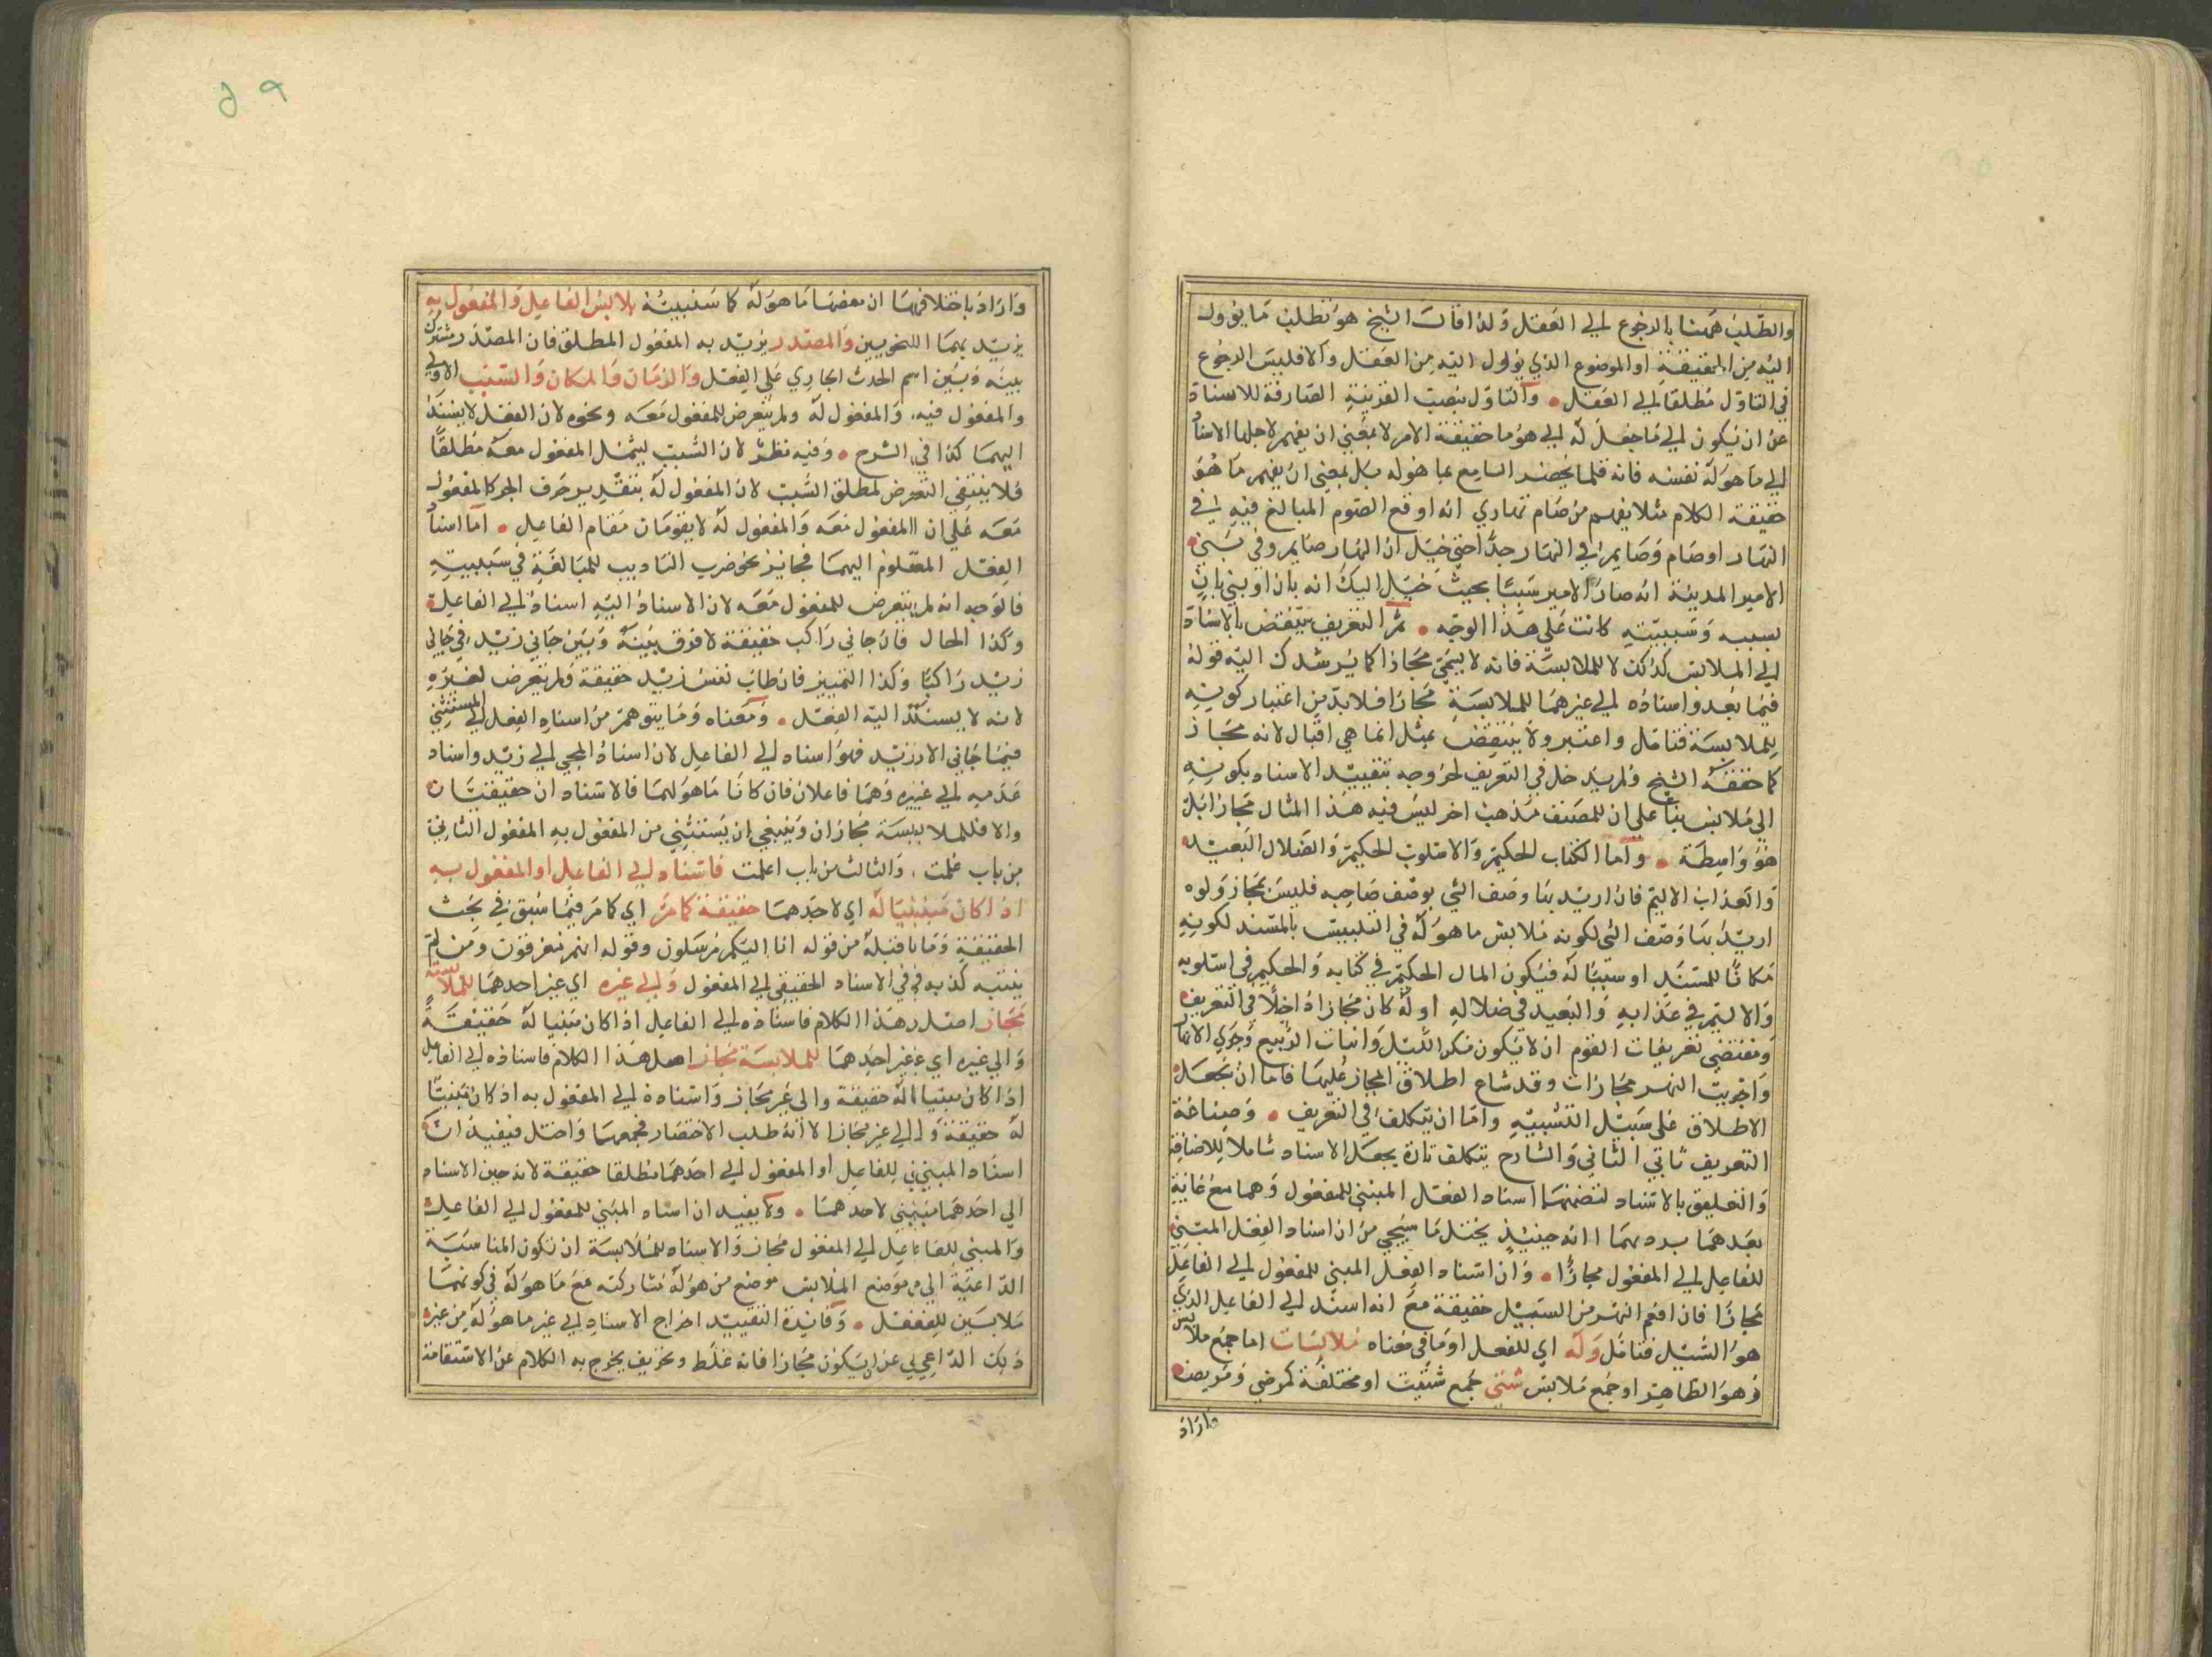 والطلب ههنا بالرجوع الي العقل ولذا قال الشيخ هو تطلب ما يؤول
اليه من الحقيقة او الموضوع الذي يؤول اليه من العقل والا فليس الرجوع
في التاول مطلقا الي العقل • والتاول بنصب القرينة الصارفة للاسناد
عن ان يكون الي ما جعل له الي هو ما حقيقة الامر لا بمعني ان يفهم لاجلها الاسناد
الي ما هو له نفسه فانه قلما يحضر السامع بما هو له بل بمعني ان يفهم ما هو
حقيقة الكلام مثلا يفهم من صام نهاري انه اوقع الصوم المبالغ فيه في
النهار او صام وصايم في النهار جدا حتي خيل ان النهار صايم وفي بني
الامير المدينة انه صار الامير سببا بحيث خيل اليك انه بان او بني بان
بسببه وسببيته كانت علي هذا الوجه • ثم التعريف ينتقض بالاسناد
الي الملابس كذلك لا للملابسة فانه لا يسمي مجازا كما يرشدك اليه قوله
فيما بعد واسناده الي غيرهما للملابسة مجاز افلا بد من اعتبار كونه
للملابسة فتامل واعتبر ولا ينتقض بمثل انما هي اقبال لانه مجاز
كما حققه الشيخ ولم يدخل في التعريف لخروجه بتقييد الاسناد بكونه
الي ملابس بنا على ان للمصنف مذهب اخر ليس فيه هذا المثال مجازا بل
هو واسطة • واما الكتاب الحكيم والاسلوب الحكيم والضلال البعيد
والعذاب الاليم فان اريد بها وصف الشي بوصف صاحبه فليس بمجاز ولو
اريد بها وصف الشي لكونه ملابس ما هو له في التلبيس بالمسند لكونه
مكانا للمسند او سببا له فيكون المال الحكيم في كتابه والحكيم في اسلوبه
والاليم في عذابه والبعيد في ضلاله اوله كان مجازا داخلا في التعريف
ومقتضي تعريفات القوم ان لا يكون مكر الليل وانبات الربيع وجري الانهار
واجريت النهر مجازات وقد شاع اطلاق المجاز عليها فاما ان يجعل
الاطلاق على سبيل التشبيه واما ان يتكلف في التعريف • وصناعة
التعريف تابي الثاني والشارح يتكلف تارة بجعل الاسناد شاملا للاضافة
والتعليق بالاسناد لتضمنهما اسناد الفعل المبني للمفعول وهما مع غاية
بعدهما يرد بهما انه حينئذ يختل ما سيجي من ان اسناد الفعل المبني
للفاعل الي المفعول مجازا • وان اسناد الفعل المبني للمفعول الي الفاعل
مجازا فان افعم النهر من السيل حقيقة مع انه اسند الي الفاعل الذي
هو السيل فتامل وله اي للفعل او ما في معناه ملابسات اما جمع ملابس
وهو الظاهر او جمع ملابس شتي جمع شتيت او مختلفة كمرضي ومريض
واراد
واراد باختلافها ان بعضها ما هو له كما سنبينه يلابس الفاعل والمفعول به
يريد بهما النحويين والمصدر يريد به المفعول المطلق فان المصدر مشترك
بينه وبين اسم الحدث الجاري علي الفعل والزمان والمكان والسبب الاولي
والمفعول فيه، والمفعول له ولم يتعرض للمفعول معه ونحوه لان الفعل لا يسند
اليهما كذا في الشرح • وفيه نظر لان السبب يشمل المفعول معه مطلقا
فلا ينتفي التعرض لمطلق السبب لان المفعول له بتقدير حرف الجر كالمفعول
معه علي ان المفعول معه والمفعول له لا يقومان مقام الفاعل • اما اسناد
الفعل المعلوم اليهما فجايز نحو ضرب التاديب للمبالغة في سببيته
فالوجه انه لم يتعرض للمفعول معه لان الاسناد اليه اسناد الي الفاعل
وكذا الحال فان جاني راكب حقيقة لا فرق بينه وبين جاني زيد، في جاني
زيد راكبا وكذا التمييز فان طاب نفس زيد حقيقة ولم يتعرض لغيره
لانه لا يسند اليه الفعل • ومعناه وما يتوهم من اسناد الفعل الي المستثني
فيما جاني الا زيد فهو اسناد الي الفاعل لان اسناد المجي الي زيد واسناد
عدمه الي غيره وهما فاعلان فان كانا ما هو لهما فالاسناد ان حقيقيان
والا فللملابسة مجازان وينبغي ان يستثني من المفعول به المفعول الثاني
من باب علمت، والثالث من باب اعلمت فاسناده الي الفاعل او المفعول به
اذا كان مبنيا له اي لاحدهما حقيقة كما مر اي كما مر فيما سبق في بحث
الحقيقة وما ناقبله من قوله انا اليكم مرسلون وقوله انهم مغرقون ومن لم
ينتبه كذب به في الاسناد الحقيقي الي المفعول والي غيره اي غير احدهما للملابسة
مجاز اصل هذا الكلام فاسناده الي الفاعل اذا كان مبنيا له حقيقة
والي غيره اي غير احدهما للملابسة مجاز اصل هذا الكلام فاسناده الي الفاعل
اذا كان مبنيا له حقيقة والى غيره مجاز واسناده الي المفعول به اذ كان مبنيا
له حقيقة والي غيره مجازا لا انه طلب الاختصار فجمعهما واختل فيفيد ان
اسناد المبني للفاعل او المفعول الي احدهما مطلقا حقيقة لانه حين الاسناد
الي احدهما مبني لاحدهما • ولا يفيد ان اسناد المبني للمفعول الي الفاعل
والمبني للفاعل الي المفعول مجاز والاسناد للملابسة ان تكون المناسبة
الداعية الي وضع الملابس موضع من هو له مشاركته مع ما هو له في كونهما
ملابسين للفعل • وفائدة التقييد اخراج الاسناد الي غير ما هو له من غير
ذلك الداعي عن ان يكون مجازا فانه غلط وتحريف يخرج به الكلام عن الاستقامة